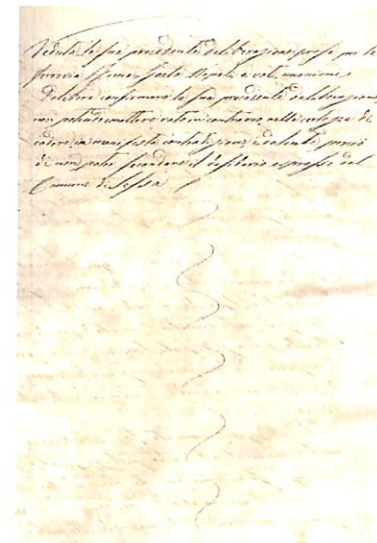 Veduta la sua precedente deliberazione presa per la
ferrovia Gaeta Napoli a voti unanimi
Delibera confermare la sua precedente deliberazione
non potendo mettere voto in contrario nella
cadere in manifesta contradizione e dolente perciò
di non poter secondare il desiderio espresso dal
Comune di Sessa